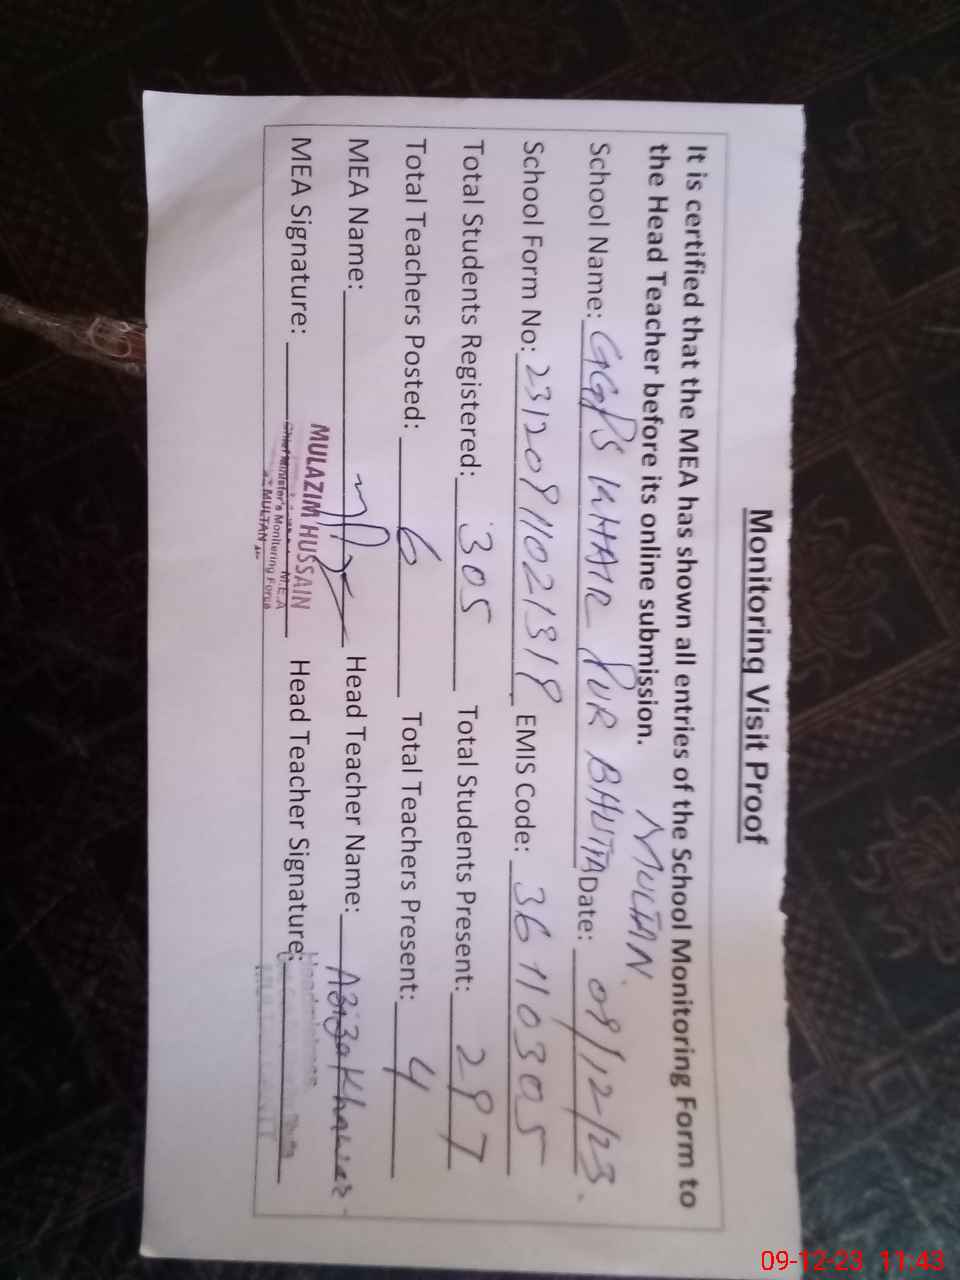 Monitoring Visit Proof
It is certified that the MEA has shown all entries of the School Monitoring Form to
the Head Teacher before its online submission.
MULTAN.
School Name: GGPS KHAIR PUR BHUTTA Date: 09/12/23.
School Form No: EMIS Code: 36110305
Total Students Registered: 305 Total Students Present: 297
Total Teachers Posted: 6 Total Teachers Present: 4
MEA Name: Head Teacher Name: Aziza Khawer
MEA Signature: Head Teacher Signature:
MULAZIM HUSSAIN
M.E.A
Chief Minister's Monitoring Force
MULTAN
Headmistress
09-12-23 11:43